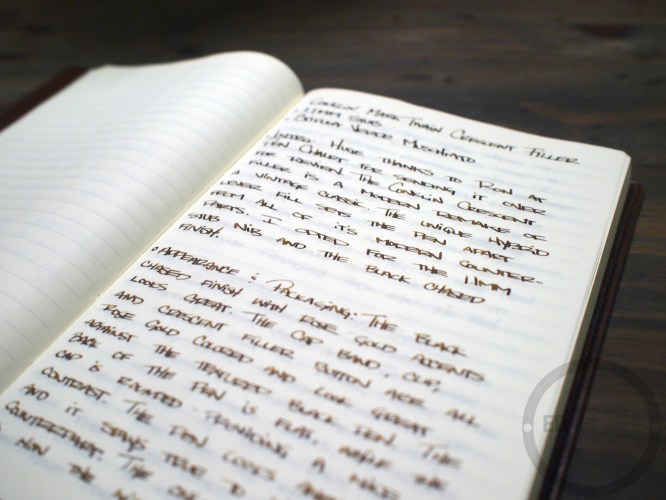 Conklin Mark Twain Crescent Filler
• 1.1mm Stub
Vector Muschiato
Intro: Huge thanks to Ron at
Pen Chalet for sending it over
for review. The Conklin Crescent
Filler is a modern remake of
a vintage classic. The unique hybrid
lever fill sets the pen apart
from all of it's modern counter-
parts. I opted for the 1.1mm
stub nib and the black chased
finish.
• Appearance & Packaging: The black
chased finish with rose gold accents
looks great. The cap band, clip,
and crescent filler button are all
rose gold colored and look great
against the textured black pen. The
back of the pen is flat, while the
cap is rounded providing a nice
contrast. The pen looks
and it stays true to
counterpart. The
now the